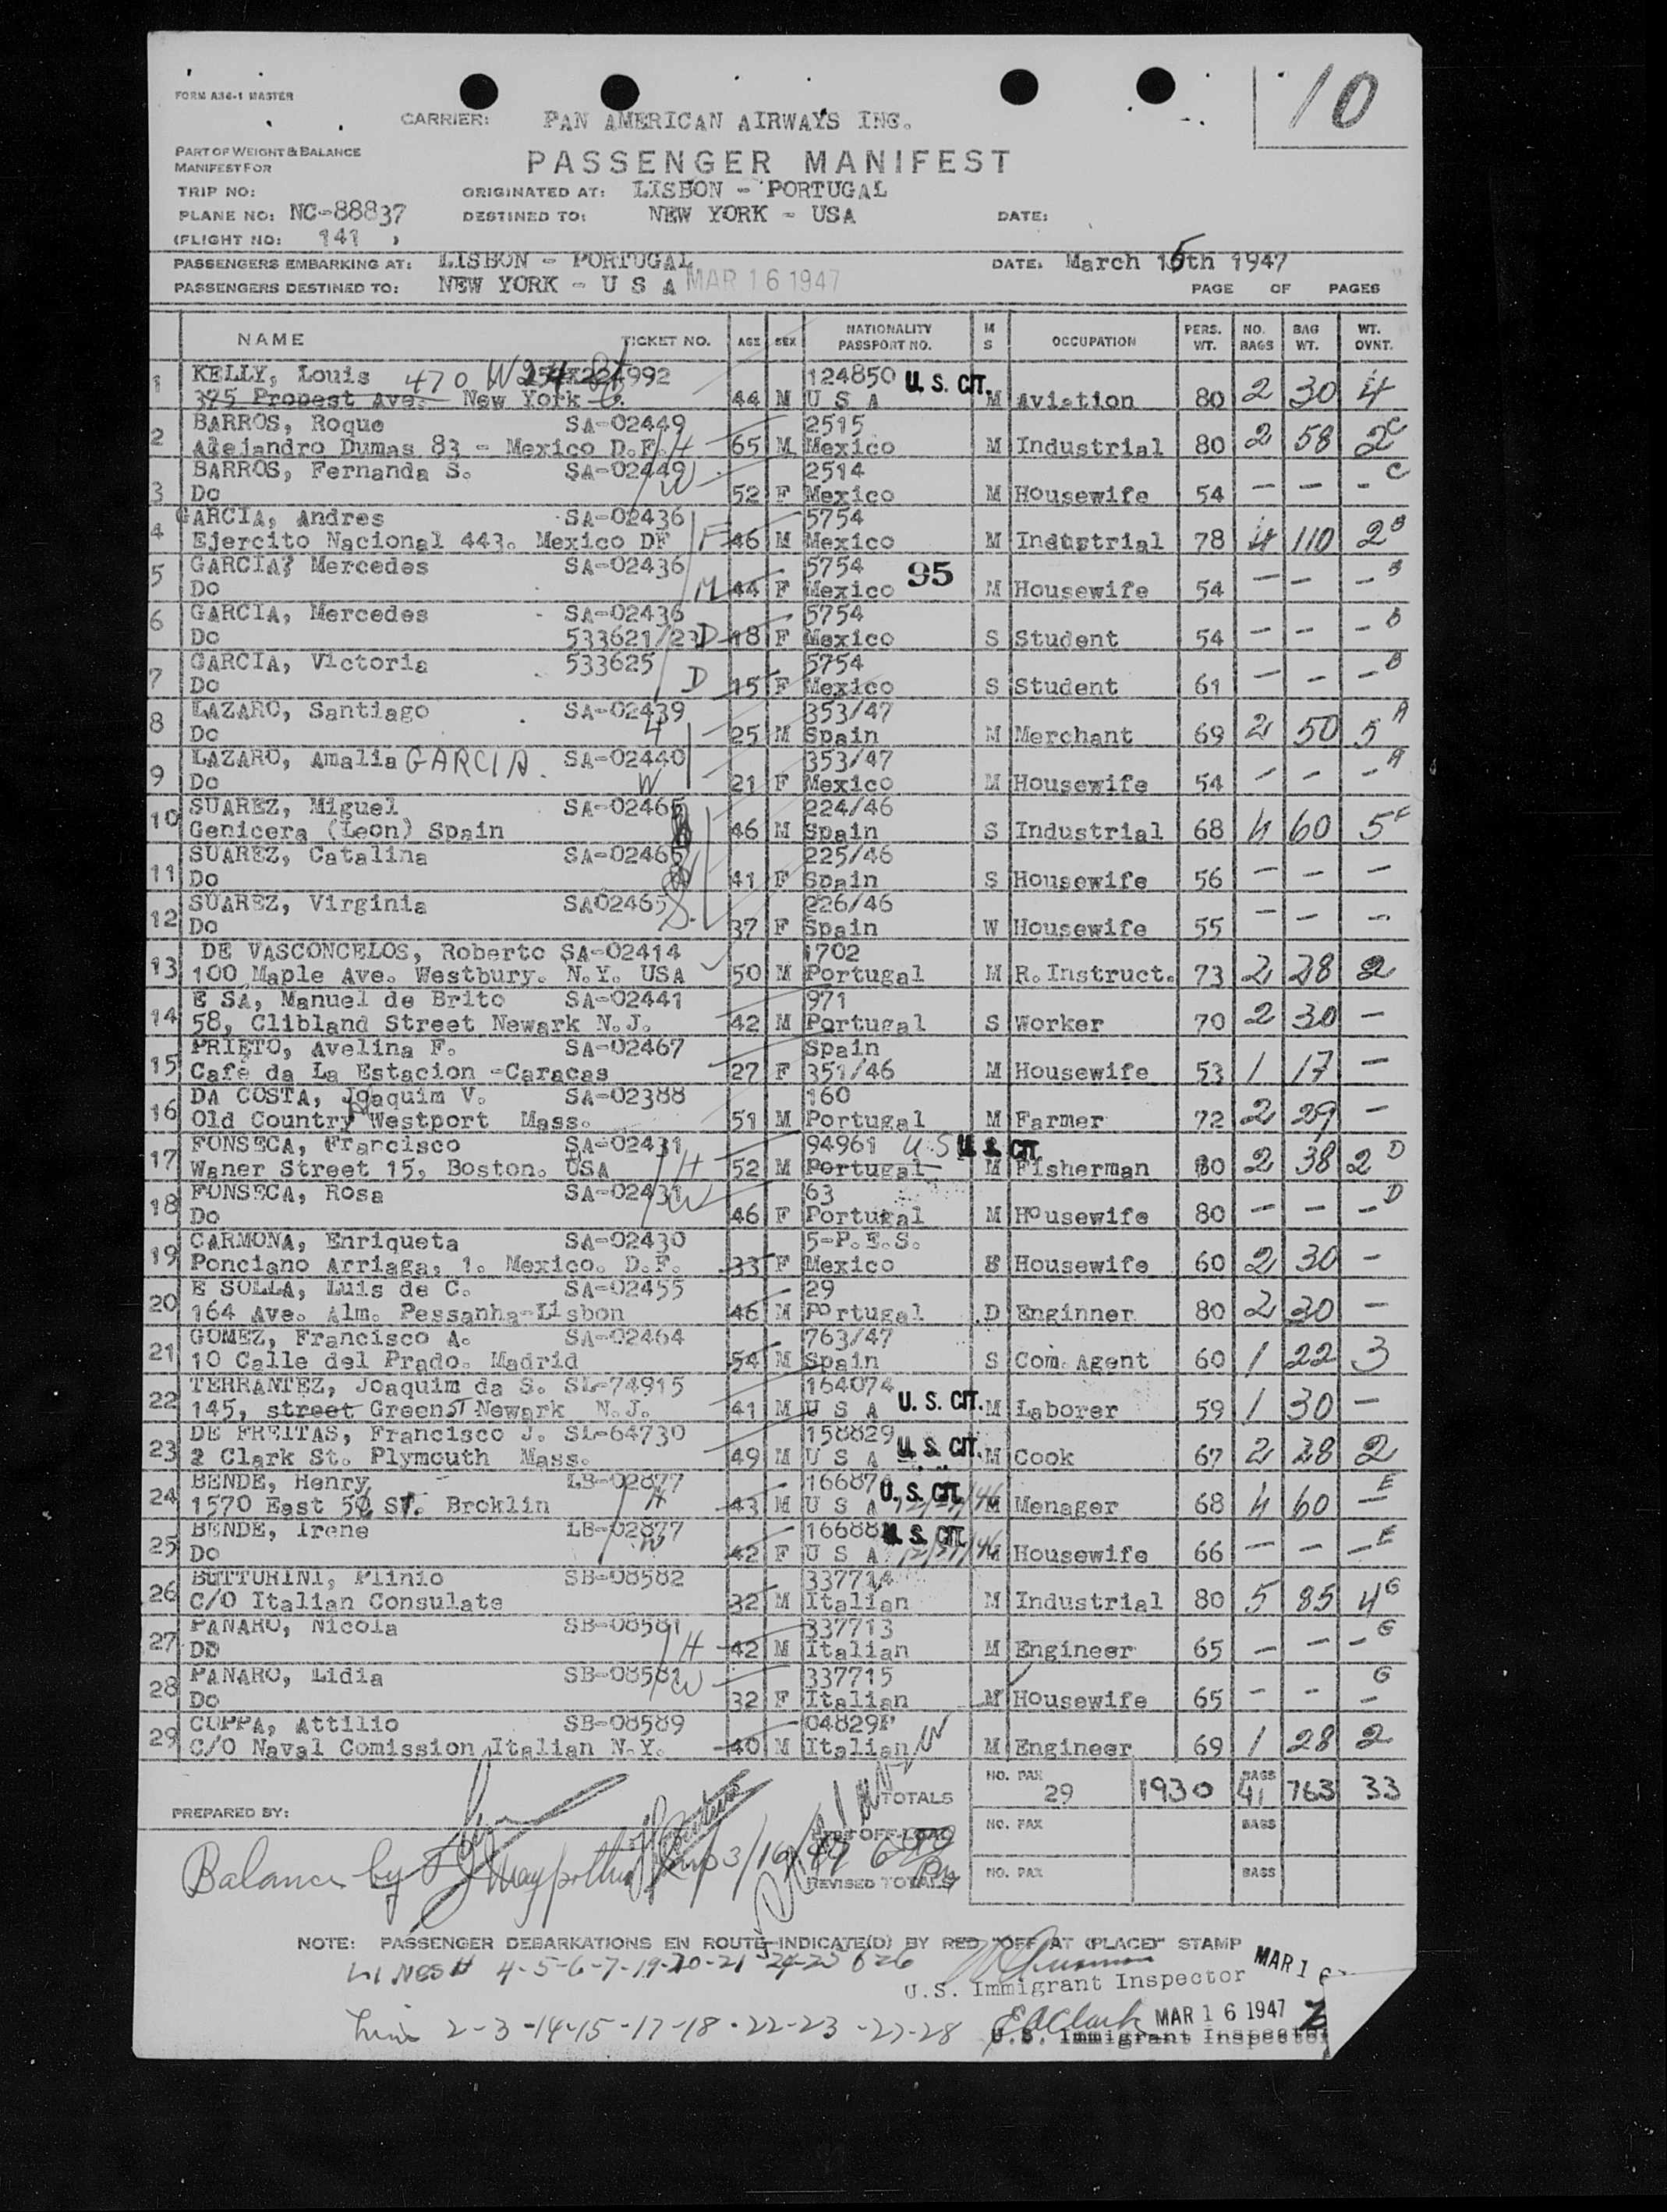 10
FORM A36-1 MASTER
CARRIER: PAN AMERICAN AIRWAYS INC.
PART OF WEIGHT & BALANCE
MANIFEST FOR
PASSENGER MANIFEST
TRIP NO: ORIGINATED AT: LISBON - PORTUGAL
PLANE NO: NC-88837 DESTINED TO: NEW YORK - USA DATE:
(FLIGHT NO: 141 )
PASSENGERS EMBARKING AT: LISBON - PORTUGAL DATE: March 15th 1947
PASSENGERS DESTINED TO: NEW YORK - U S A MAR 16 1947 PAGE OF PAGES
NAME TICKET NO. AGE SEX NATIONALITY PASSPORT NO. M S OCCUPATION PERS. WT. NO. BAGS BAG WT. WT. OVNT.
1 KELLY, Louis 470 W 24 St 992 124850 U. S. CIT.
375 Propest Ave. New York 44 M U S A M Aviation 80 2 30 4
2 BARROS, Roque SA-02449 2515
Alejandro Dumas 83 - Mexico D.F. H 65 M Mexico M Industrial 80 2 58 2 C
3 BARROS, Fernanda S. SA-02449 2514
Do W 52 F Mexico M Housewife 54 - - - C
4 GARCIA, Andres SA-02436 5754
Ejercito Nacional 443. Mexico DF F 46 M Mexico M Industrial 78 4 110 2 B
5 GARCIA, Mercedes SA-02436 5754 95
Do M 44 F Mexico M Housewife 54 - - - B
6 GARCIA, Mercedes SA-02436 5754
Do 533621/23 D 18 F Mexico S Student 54 - - - B
7 GARCIA, Victoria 533625 5754
Do D 15 F Mexico S Student 61 - - - B
8 LAZARO, Santiago SA-02439 353/47
Do H 25 M Spain M Merchant 69 2 50 5 A
9 LAZARO, Amalia GARCIA. SA-02440 353/47
Do W 21 F Mexico M Housewife 54 - - - A
10 SUAREZ, Miguel SA-02465 224/46
Genicera (Leon) Spain 46 M Spain S Industrial 68 4 60 5 F
11 SUAREZ, Catalina SA-02465 225/46
Do 41 F Spain S Housewife 56 - - -
12 SUAREZ, Virginia SA02465 226/46
Do S. 37 F Spain W Housewife 55 - - -
13 DE VASCONCELOS, Roberto SA-02414 1702
100 Maple Ave. Westbury. N.Y. USA 50 M Portugal M R.Instruct. 73 2 28 2
14 E SA, Manuel de Brito SA-02441 971
58, Clibland Street Newark N.J. 42 M Portugal S Worker 70 2 30 -
15 PRIETO, Avelina F. SA-02467 Spain
Café da La Estacion -Caracas 27 F 351/46 M Housewife 53 1 17 -
16 DA COSTA, Joaquim V. SA-02388 160
Old Country Westport Mass. 51 M Portugal M Farmer 72 2 29 -
17 FONSECA, Francisco SA-02431 94961 U.S U. S. CIT.
Waner Street 15, Boston. USA H 52 M Portugal M Fisherman 80 2 38 2 D
18 FONSECA, Rosa SA-02431 63
Do W 46 F Portugal M Housewife 80 - - - D
19 CARMONA, Enriqueta SA-02430 5-P.E.S.
Ponciano Arriaga, 1. Mexico. D.F. 33 F Mexico S Housewife 60 2 30 -
20 E SOLLA, Luis de C. SA-02455 29
164 Ave. Alm. Pessanha-Lisbon 46 M Portugal D Enginner 80 2 30 -
21 GOMEZ, Francisco A. SA-02464 763/47
10 Calle del Prado. Madrid 54 M Spain S Com. Agent 60 1 22 3
22 TERRANTEZ, Joaquim da S. SL-74915 164074
145, street Green ST Newark N.J. 41 M U S A U. S. CIT. M Laborer 59 1 30 -
23 DE FREITAS, Francisco J. SL-64730 158829
2 Clark St. Plymouth Mass. 49 M U S A U. S. CIT. M Cook 67 2 28 2
24 BENDE, Henry LB-02877 16687 U. S. CIT.
1570 East St. Brcklin H 43 M U S A 12/ /46 M Menager 68 4 60 - E
25 BENDE, Irene LB-02877 16688 U. S. CIT.
Do W 42 F U S A 12/ /46 Housewife 66 - - - E
26 BUTTURINI, Plinio SB-08582 337714
C/O Italian Consulate 32 M Italian M Industrial 80 5 85 4 G
27 PANARO, Nicola SB-08581 337713
DO H 42 M Italian M Engineer 65 - - - G
28 PANARO, Lidia SB-08581 337715
Do W 32 F Italian M Housewife 65 - - - G
29 CUPPA, Attilio SB-08589 04829
C/O Naval Comission Italian N.Y. 40 M Italian M Engineer 69 1 28 2
TOTALS NO. PAX 29 1930 BAGS 41 763 33
PREPARED BY:
OFF-LOAD NO. PAX BAGS
Balance by 3/16/47
REVISED TOTALS NO. PAX BAGS
NOTE: PASSENGER DEBARKATIONS EN ROUTE INDICATE(D) BY RED "OFF AT (PLACE)" STAMP
LINES # 4-5-6-7-19-20-21-24-25 & 26 MAR 1 6
U.S. Immigrant Inspector
Line 2-3-14-15-17-18-22-23-27-28 E A Clark MAR 1 6 1947
U.S. Immigrant Inspector